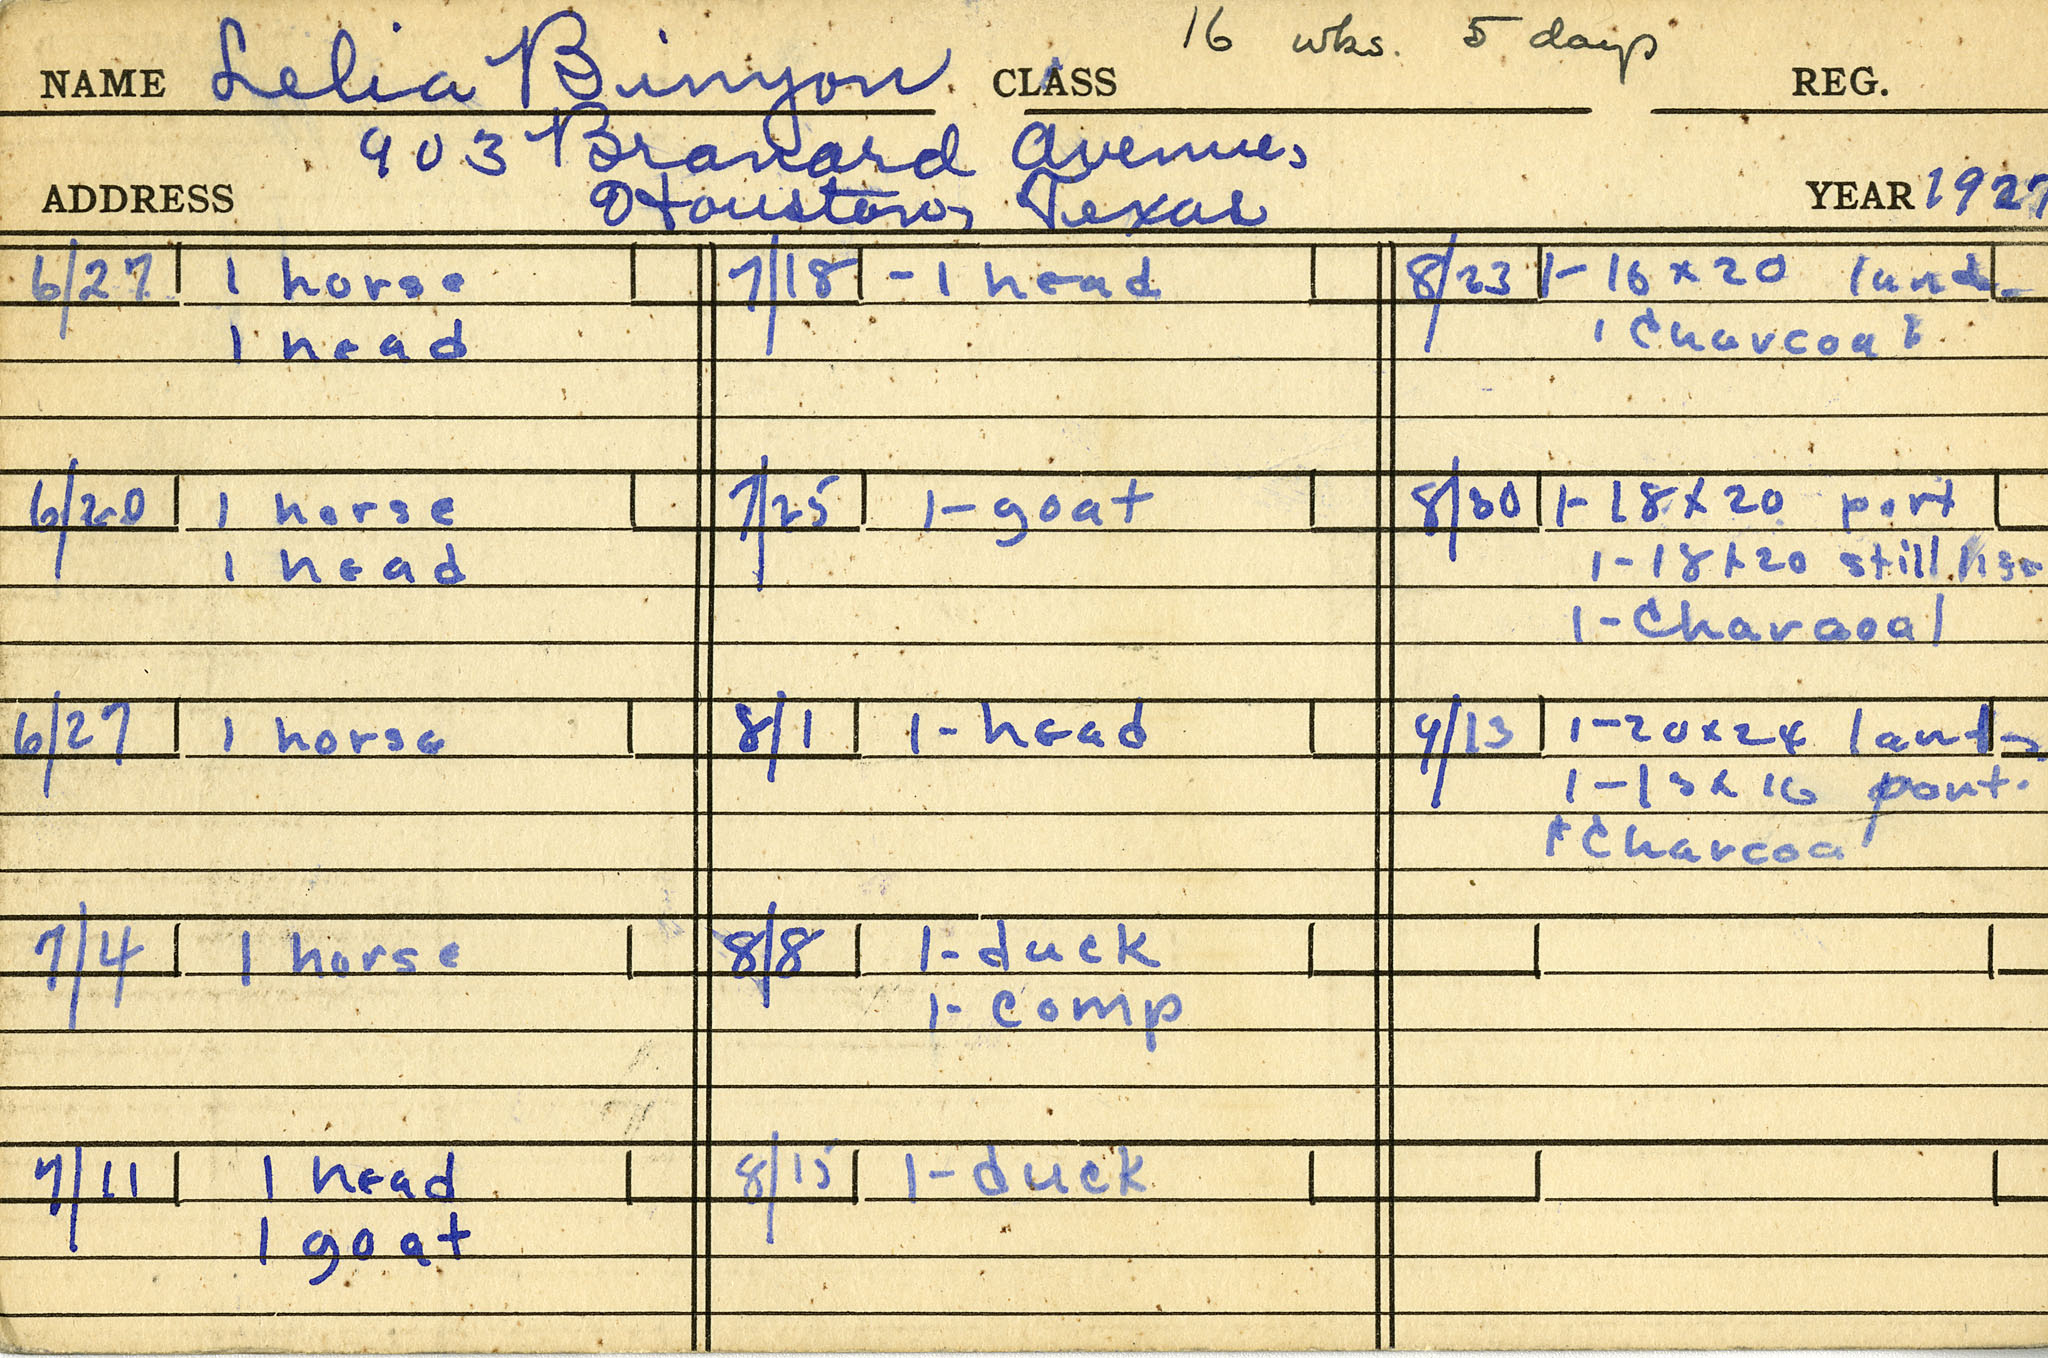 16 wks. 5 days
NAME Lelia Binyon CLASS REG.
903 Branard Avenue,
ADDRESS Houston, Texas YEAR 1927
6/27 1 horse
1 head
6/20 1 horse
1 head
6/27 1 horse
7/4 1 horse
7/11 1 head
1 goat
7/18 - 1 head
7/25 1- goat
8/1 1- head
8/8 1- duck
1- comp
8/15 1- duck
8/23 1- 16 x 20 land.
1 Charcoal
8/30 1- 18 x 20 port
1- 18 x 20 still
1- Charcoal
9/13 1- 20 x 24 land
1- 13 x 16 port.
1 Charcoal